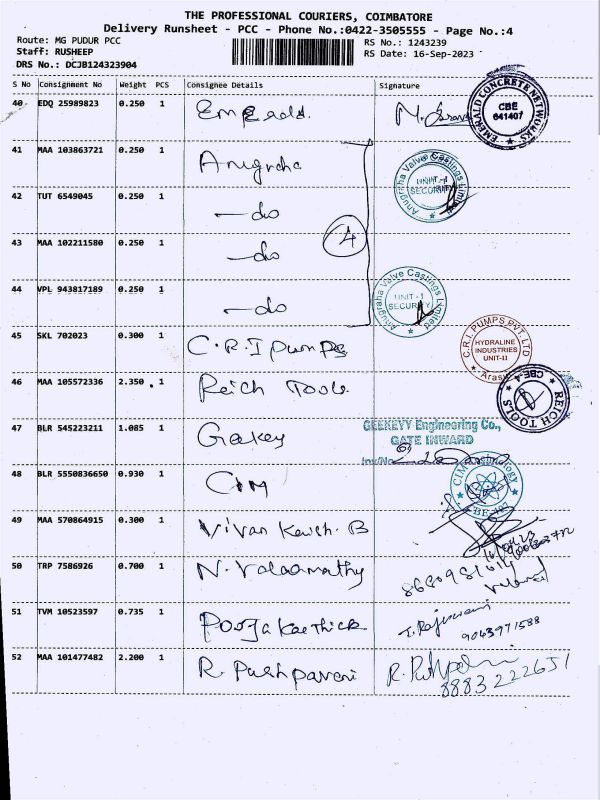 THE PROFESSIONAL COURIERS, COIMBATORE
Delivery Runsheet - PCC - Phone No.:0422-3505555 - Page No.:4
Route: MG PUDUR PCC
RS No.: 1243239
Staff: RUSHEEP
RS Date: 16-Sep-2023
DRS No.: DCJB124323904
S No Consignment No Weight PCS Consignee Details Signature
40 EDQ 25989823 0.250 1 Emerald.
EMERALD CONCRETE NETWORKS
CBE
641407
41 MAA 103863721 0.250 1 Anugraha
Anugraha Valve Castings Limited
UNIT-1
SECURITY
42 TUT 6549045 0.250 1 —do
43 MAA 102211580 0.250 1 —do
4
44 VPL 943817189 0.250 1 —do
Anugraha Valve Castings Limited
UNIT-1
SECURITY
45 SKL 702023 0.300 1 C.R.I Pumps
C.R.I. PUMPS PVT. LTD
HYDRALINE
INDUSTRIES
UNIT-II
46 MAA 105572336 2.350 1 Reich Tools
REICH TOOLS
CBE-A
47 BLR 545223211 1.085 1 Gekey
GEEKEYY Engineering Co.,
GATE INWARD
48 BLR 5550836650 0.930 1 CIM
49 MAA 570864915 0.300 1
50 TRP 7586926 0.700 1 N. Valaamathy
51 TVM 10523597 0.735 1 Pooja Karthick
9043971588
52 MAA 101477482 2.200 1 R. Pushpavani
8883222651